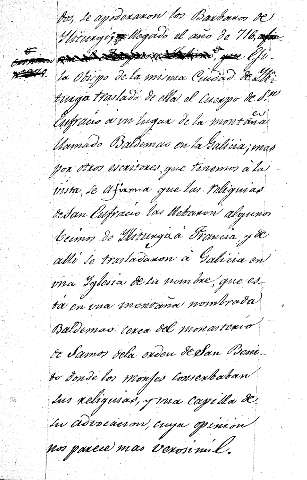 des, se apoderaron los Barbaros de
Iliturgi, y llegado el año de 716,
que Esi-
la obispo de la misma Ciudad de Ili-
turgi trasladó de ella el cuerpo de Sn.
Eufracio a un lugar de la montaña
llamado Baldemao en la Galicia; mas
por otros escritores, que tenemos á la
vista, se afirma que las Reliquias
de San Eufracio las llebaron algunos
becinos de Iliturgi á Francia, y de
alli se trasladaron á Galicia en
una Yglesia de su nombre, que es-
tá en una montaña nombrada
Baldemao cerca del monasterio
de Samos de la orden de San Beni-
to donde los monjes conserbaban
sus reliquias, y una capilla de
su advocacion, cuya opinion
nos parece mas verosimil.